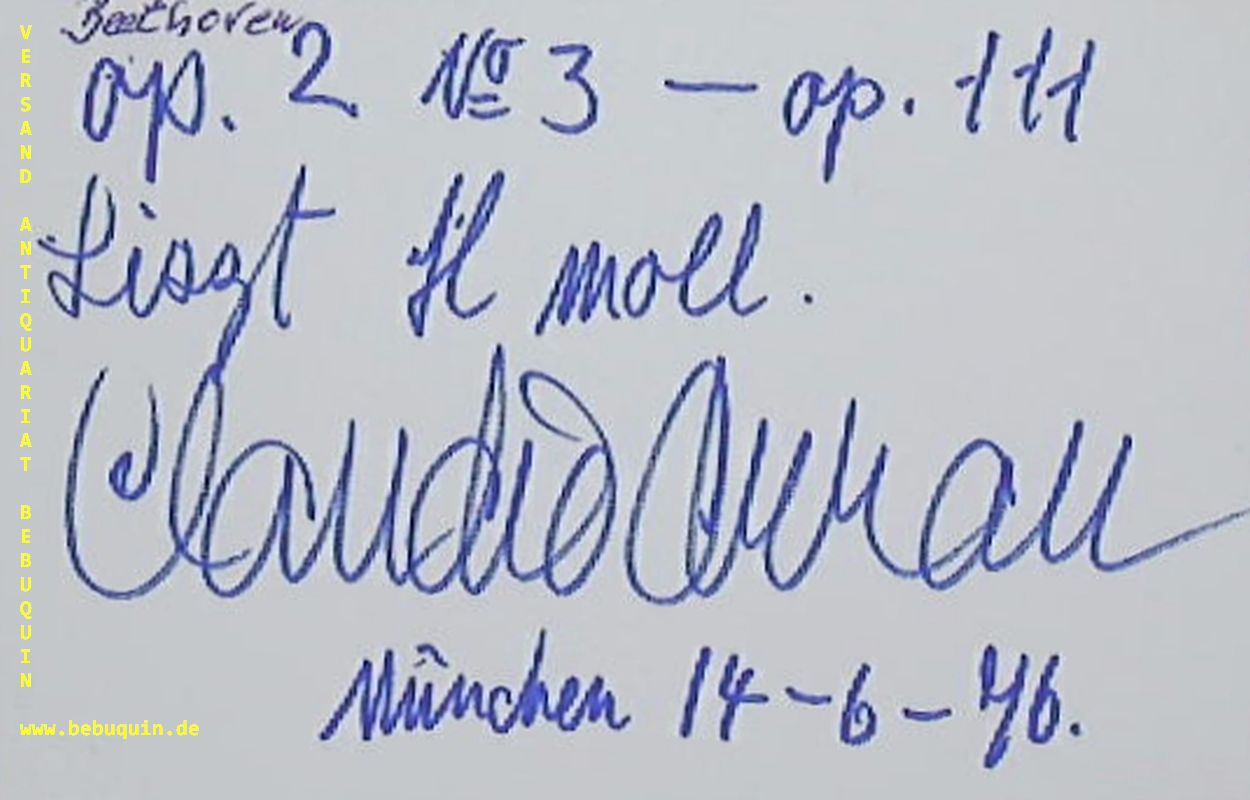 Beethoven
op. 2 Nº 3 — op. 111
Liszt H moll.
Claudio Arrau
München 14-6-76.
VERSAND ANTIQUARIAT BEBUQUIN
www.bebuquin.de